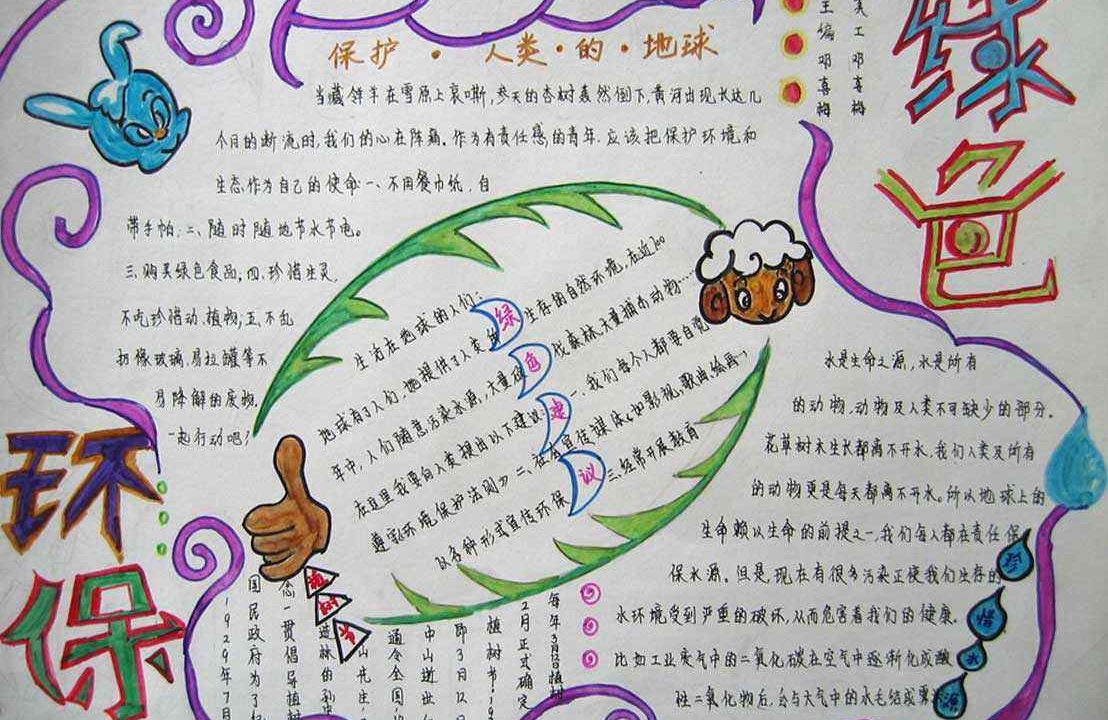 保护·人类·的·地球
当藏羚羊在雪原上哀嘶，参天的杏树轰然倒下，黄河出现长达几
个月的断流时，我们的心在阵痛。作为有责任感的青年，应该把保护环境和
生态作为自己的使命：一、不用餐巾纸，自
带手帕；二、随时随地节水节电。
三、购买绿色食品，四、珍惜生灵，
不吃珍惜动、植物；五、不乱
扔像玻璃、易拉罐等不
易降解的废物，
一起行动吧！
绿色
环保
主编 邓喜梅
美工 邓喜梅
绿色建议
生活在地球的人们：
地球有了人们，她提供了人类 生存的自然环境，在近100
年中，人们随意污染水源，大量砍伐森林，大量捕杀动物……
在这里我要向人类提出以下建议：一、我们每个人都要自觉
遵守《环境保护法则》二、 宣传媒体（如影视、歌曲、绘画）
以多种形式宣传环保 三、经常开展教育
植树节
每年3月12日植树
2月正式确定
植树节：19
即3日12
中山逝世
通令全国
山先生
造林的孙中
念一贯倡导植树
国民政府为了纪
1929年7月
水是生命之源，水是所有
的动物、动物及人类不可缺少的部分。
花草树木生长都离不开水，我们人类及所有
的动物更是每天都离不开水。所以地球上的
生命赖以生命的前提之一，我们每人都在责任保
保水源。但是，现在有很多污染正使我们生存的
水环境受到严重的破坏，从而危害着我们的健康。
比如工业废气中的二氧化碳在空气中逐渐化成酸
性二氧化物后，会与大气中的水毛结成雾
珍惜水源